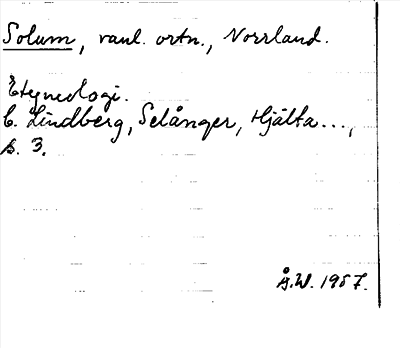 Solum, vanl. ortn., Norrland.
Etymologi.
C. Lindberg, Selånger, Hjälta...,
s. 3.
Å.W. 1957.